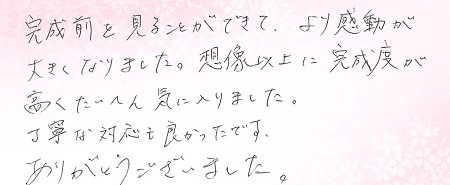 完成前を見ることができて、より感動が
大きくなりました。想像以上に完成度が
高くたいへん気に入りました。
丁寧な対応も良かったです、
ありがとうございました。